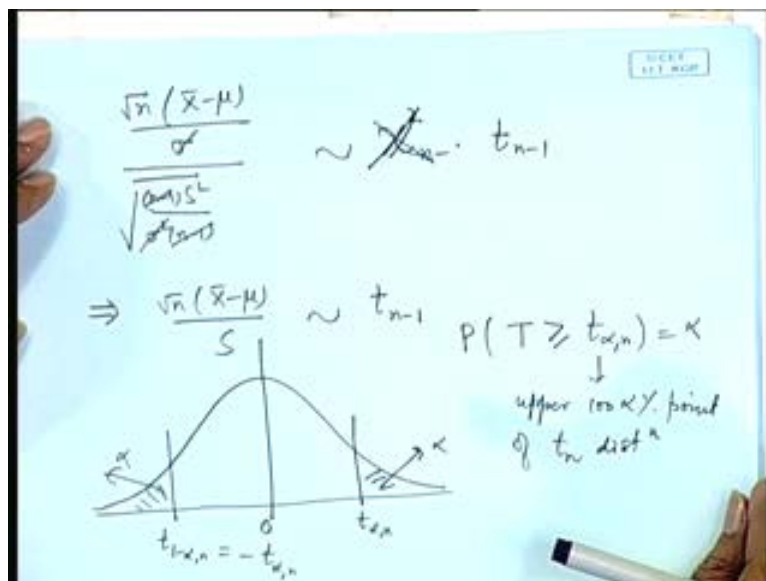 √n (x̄-μ)
σ
√ (n-1)S²
σ²(n-1)
~ t_{n-1}
⇒ √n (x̄-μ)
S
~ t_{n-1}
P( T ≥ t_{α,n}) = α
↓
upper 100 α% point
of t_n distⁿ
α
α
t_{1-α,n} = - t_{α,n}
0
t_{α,n}